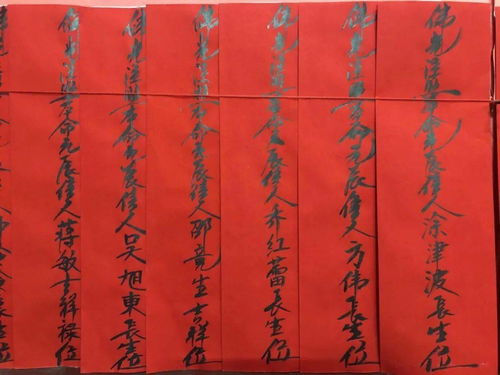 佛光注照本命元辰信人涂津波長生位
佛光注照本命元辰信人方偉長生位
佛光注照本命元辰信人红蕾長生位
佛光注照本命元辰信人邵竟生吉祥位
佛光注照本命元辰信人吴旭東長生位
佛光注照本命元辰信人蒋敏吉祥禄位